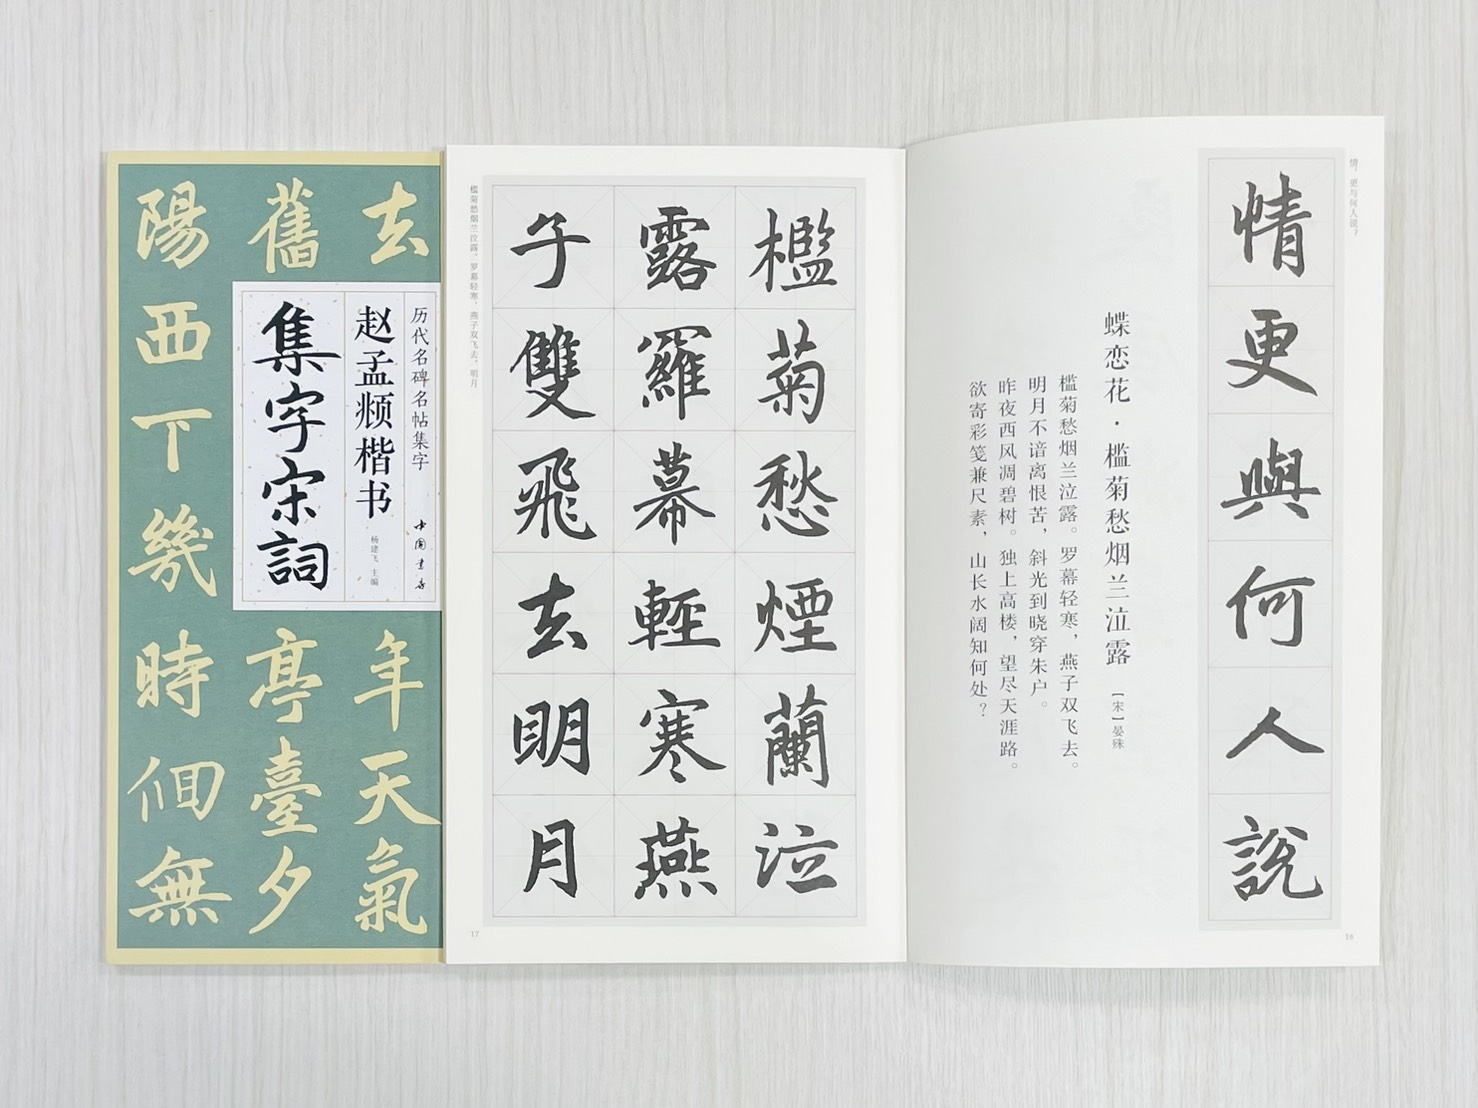 去舊陽
西下幾
時佪無
年天氣
亭臺夕
历代名碑名帖集字
赵孟頫楷书
集字宋詞
杨建飞 主编
中国书店
情更與何人說
情，更与何人说？
16
蝶恋花·槛菊愁烟兰泣露
〔宋〕晏殊
槛菊愁烟兰泣露。罗幕轻寒，燕子双飞去。
明月不谙离恨苦，斜光到晓穿朱户。
昨夜西风凋碧树。独上高楼，望尽天涯路。
欲寄彩笺兼尺素，山长水阔知何处？
檻菊愁煙蘭泣
露羅幕輕寒燕
子雙飛去明月
槛菊愁烟兰泣露。罗幕轻寒，燕子双飞去。明月
17